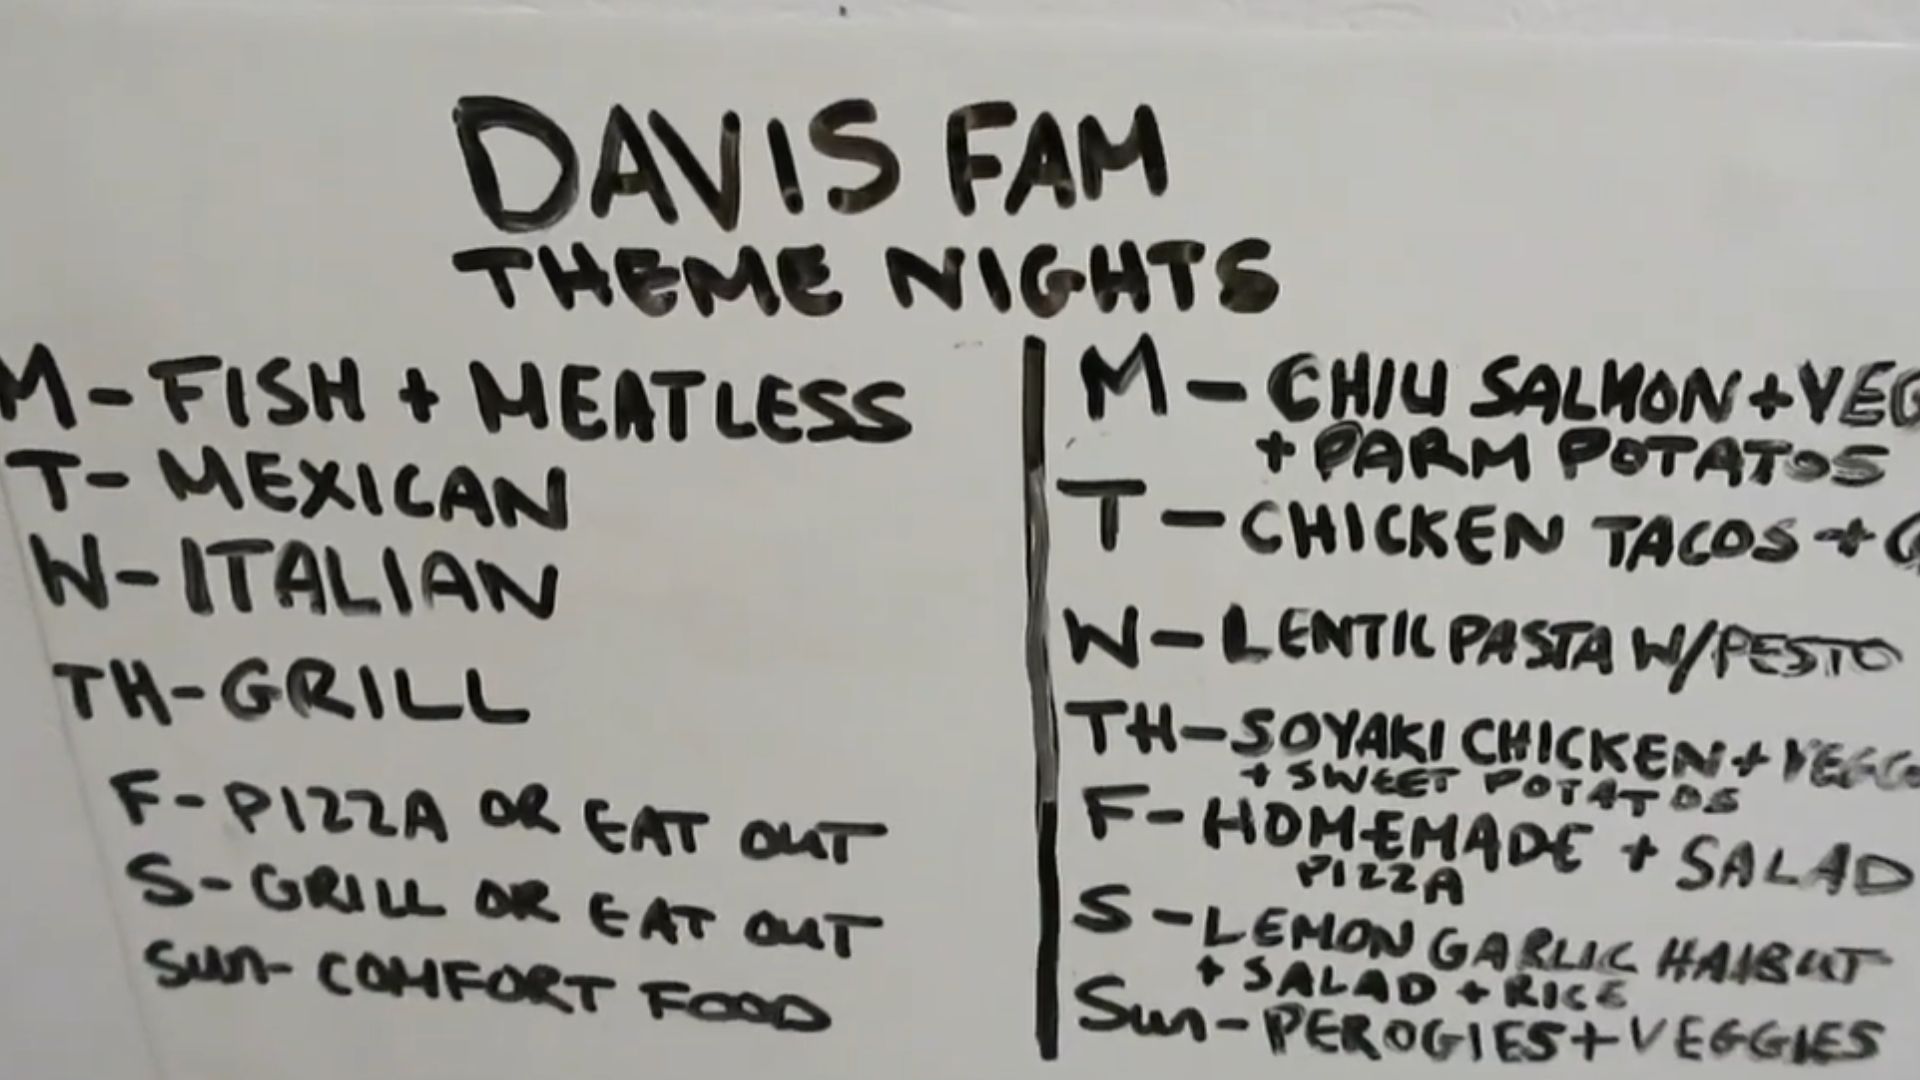 DAVIS FAM
THEME NIGHTS
M- FISH + MEATLESS
T- MEXICAN
W- ITALIAN
TH- GRILL
F- PIZZA OR EAT OUT
S- GRILL OR EAT OUT
Sun- COMFORT FOOD
M - CHILI SALMON + VEG
+ PARM POTATOS
T - CHICKEN TACOS +
W - LENTIL PASTA W/PESTO
TH - SOYAKI CHICKEN + VEGG
+ SWEET POTATOS
F - HOMEMADE + SALAD
PIZZA
S - LEMON GARLIC HAIBUT
+ SALAD + RICE
Sun - PEROGIES + VEGGIES